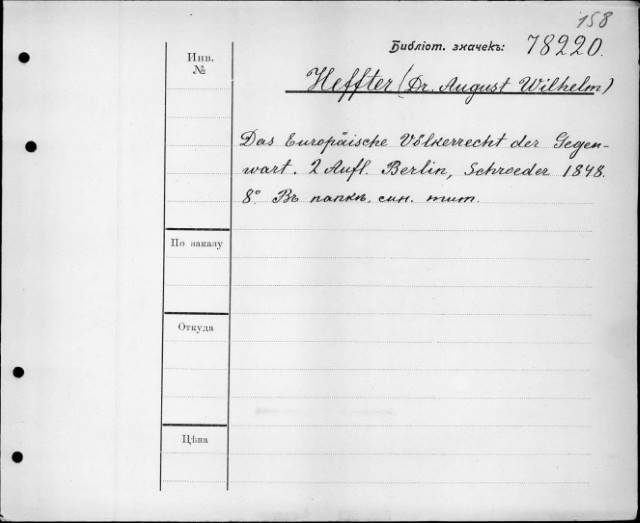 158
Библіот. значекъ: 78220.
Инв.
№
Heffter (Dr. August Wilhelm)
Das Europäische Völkerrecht der Gegen-
wart. 2 Aufl. Berlin, Schroeder 1848.
8° Въ папкѣ. син. тит.
По заказу
Откуда
Цѣна